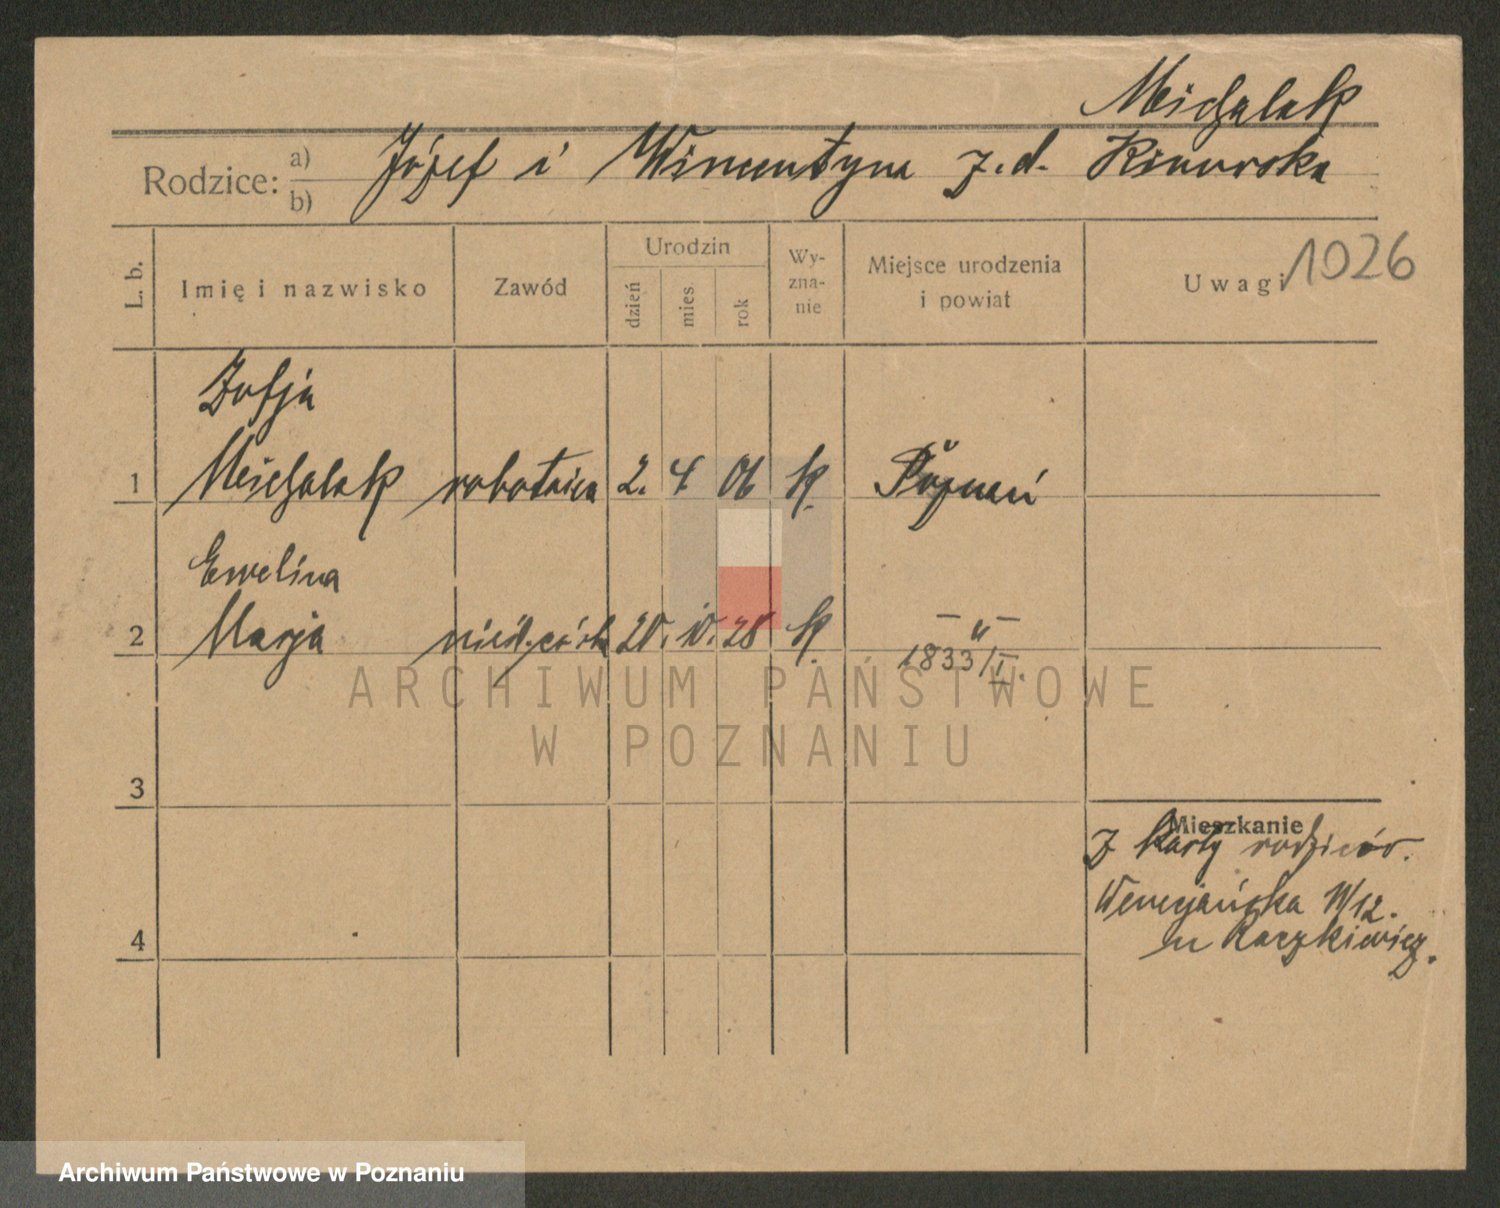 Michalak
Rodzice: a) b) Józef i Wincentyna z.d.
L. b. Imię i nazwisko Zawód Urodzin dzień mies rok Wy-zna-nie Miejsce urodzenia i powiat Uwagi 1026
Zofja
1 Michalak robotnica 2. 4 06 k. Poznań
Ewelina
2 Marja 20. 10. 28 k. — " —
1833/I.
ARCHIWUM PAŃSTWOWE
W POZNANIU
3
Mieszkanie
Z karty rodziców.
4 Wenecjańska 11/12.
u Raczkiewicz.
Archiwum Państwowe w Poznaniu